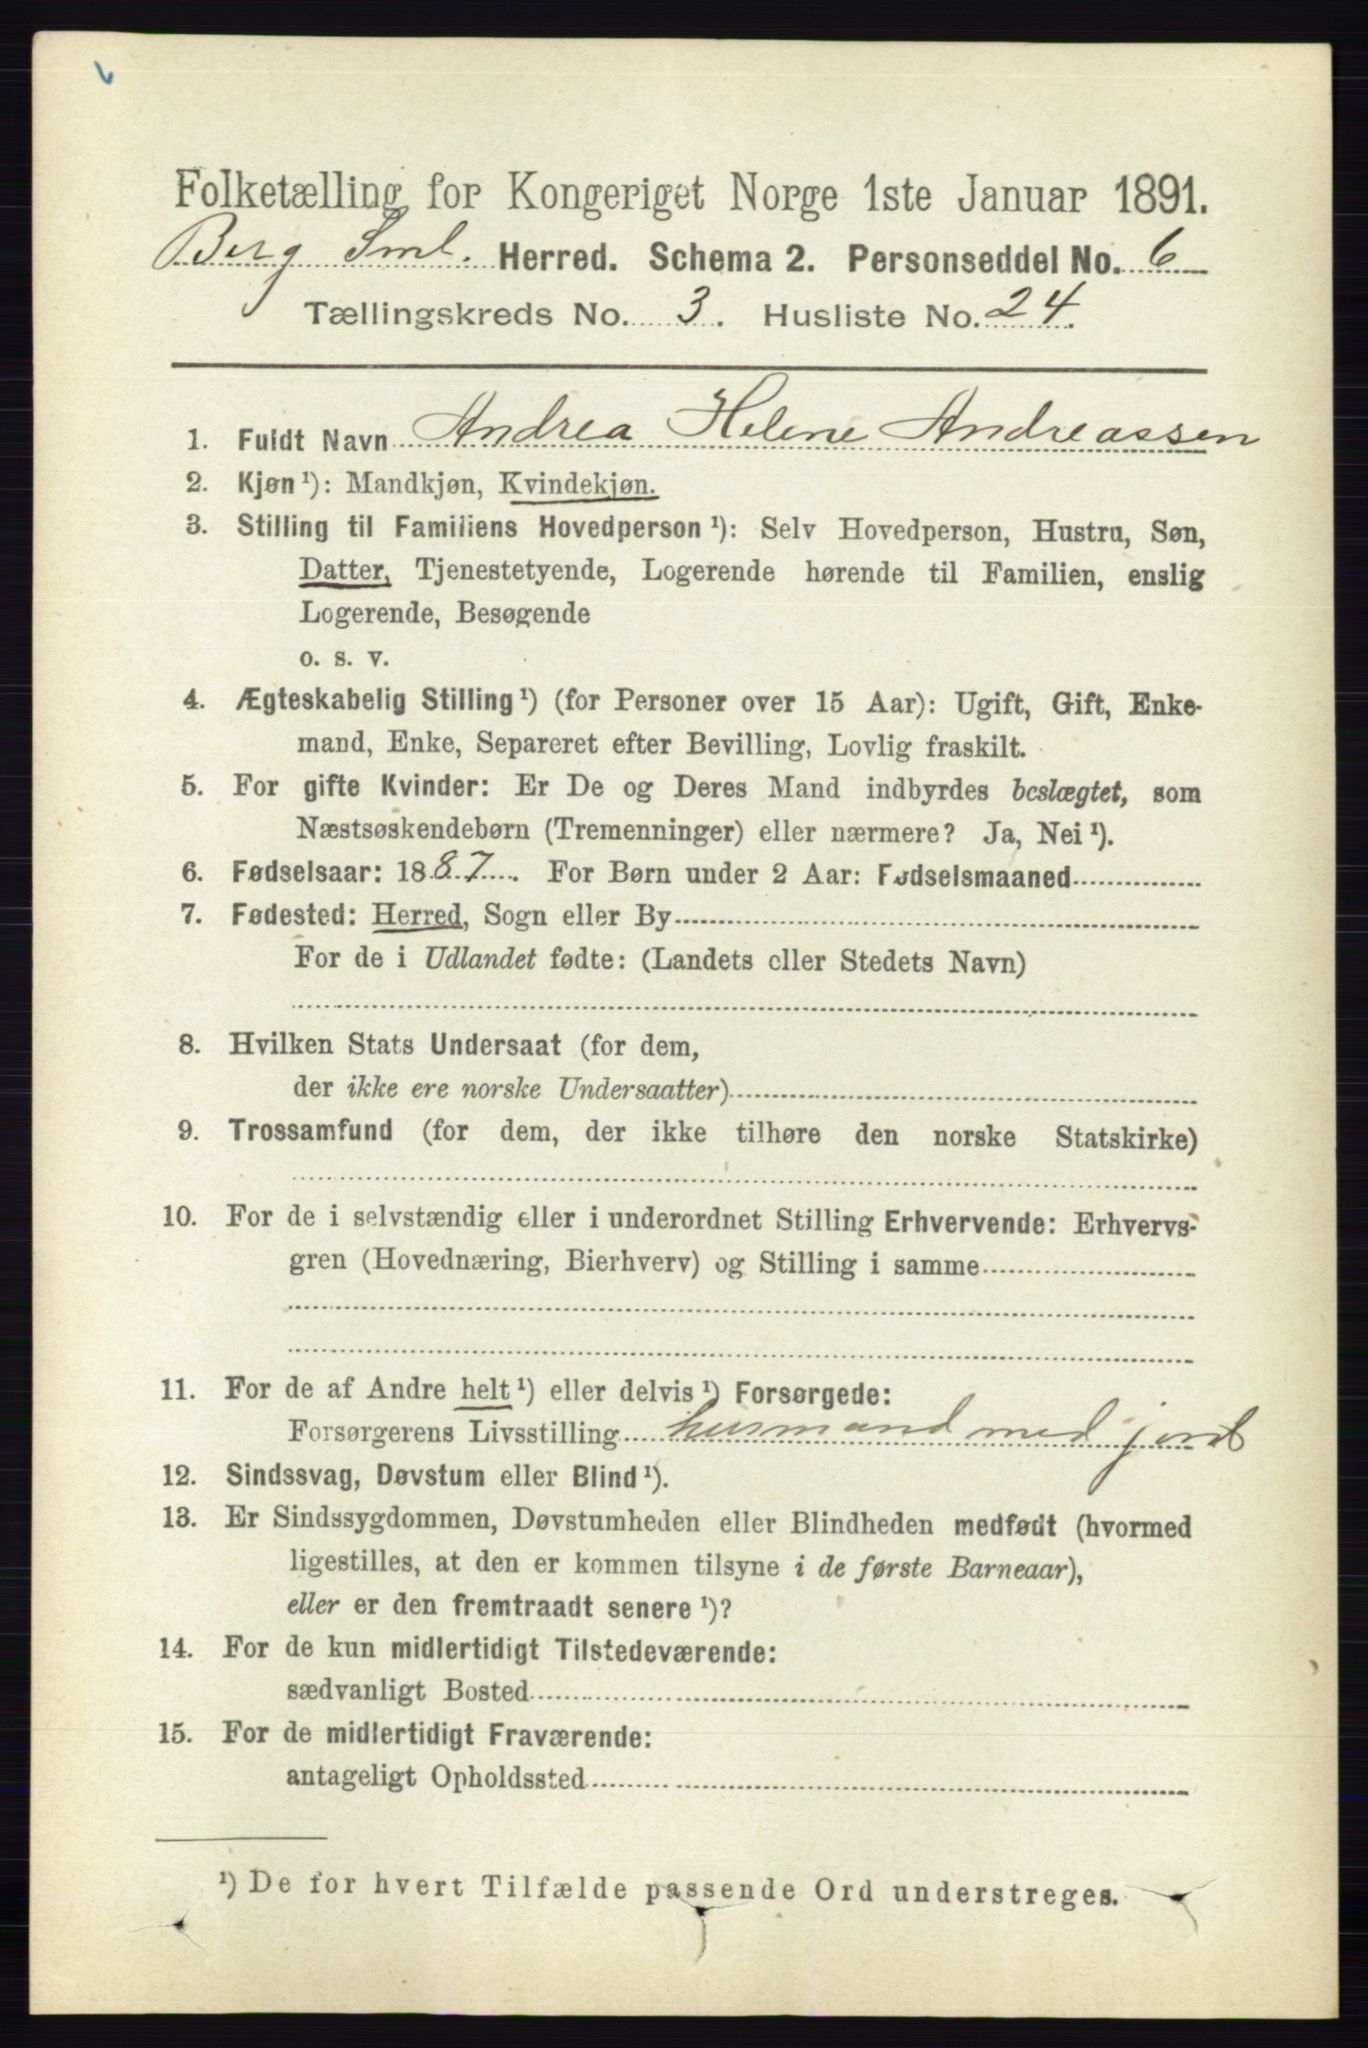 Folketælling for Kongeriget Norge 1ste Januar 1891.
Berg Sml. Herred. Schema 2. Personseddel No. 6
Tællingskreds No. 3. Husliste No. 24.
1. Fuldt Navn Andrea Helene Andreassen
2. Kjøn ¹): Mandkjøn, Kvindekjøn.
3. Stilling til Familiens Hovedperson ¹): Selv Hovedperson, Hustru, Søn,
Datter, Tjenestetyende, Logerende hørende til Familien, enslig
Logerende, Besøgende
o. s. v.
4. Ægteskabelig Stilling ¹) (for Personer over 15 Aar): Ugift, Gift, Enke-
mand, Enke, Separeret efter Bevilling, Lovlig fraskilt.
5. For gifte Kvinder: Er De og Deres Mand indbyrdes beslægtet, som
Næstsøskendebørn (Tremenninger) eller nærmere? Ja, Nei ¹).
6. Fødselsaar: 1887. For Børn under 2 Aar: Fødselsmaaned
7. Fødested: Herred, Sogn eller By
For de i Udlandet fødte: (Landets eller Stedets Navn)
8. Hvilken Stats Undersaat (for dem,
der ikke ere norske Undersaatter)
9. Trossamfund (for dem, der ikke tilhøre den norske Statskirke)
10. For de i selvstændig eller i underordnet Stilling Erhvervende: Erhvervs-
gren (Hovednæring, Bierhverv) og Stilling i samme
11. For de af Andre helt ¹) eller delvis ¹) Forsørgede:
Forsørgerens Livsstilling husmand med jord
12. Sindssvag, Døvstum eller Blind ¹).
13. Er Sindssygdommen, Døvstumheden eller Blindheden medfødt (hvormed
ligestilles, at den er kommen tilsyne i de første Barneaar),
eller er den fremtraadt senere ¹)?
14. For de kun midlertidigt Tilstedeværende:
sædvanligt Bosted
15. For de midlertidigt Fraværende:
antageligt Opholdssted
¹) De for hvert Tilfælde passende Ord understreges.